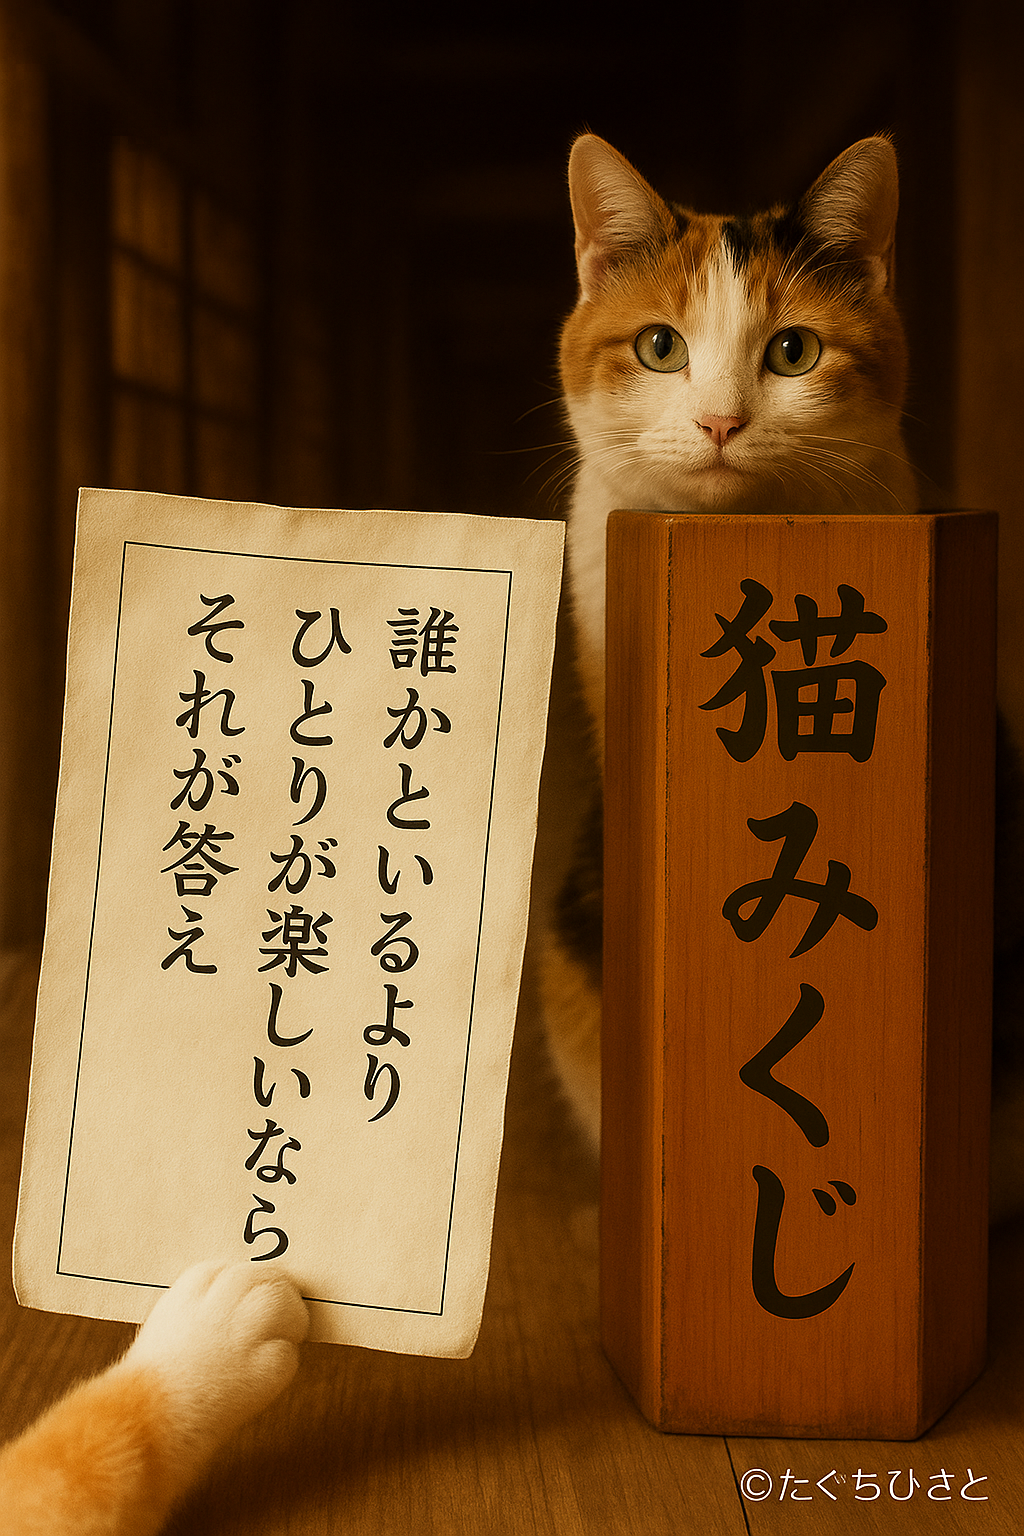 誰かといるより
ひとりが楽しいなら
それが答え
猫みくじ
©たぐちひさと